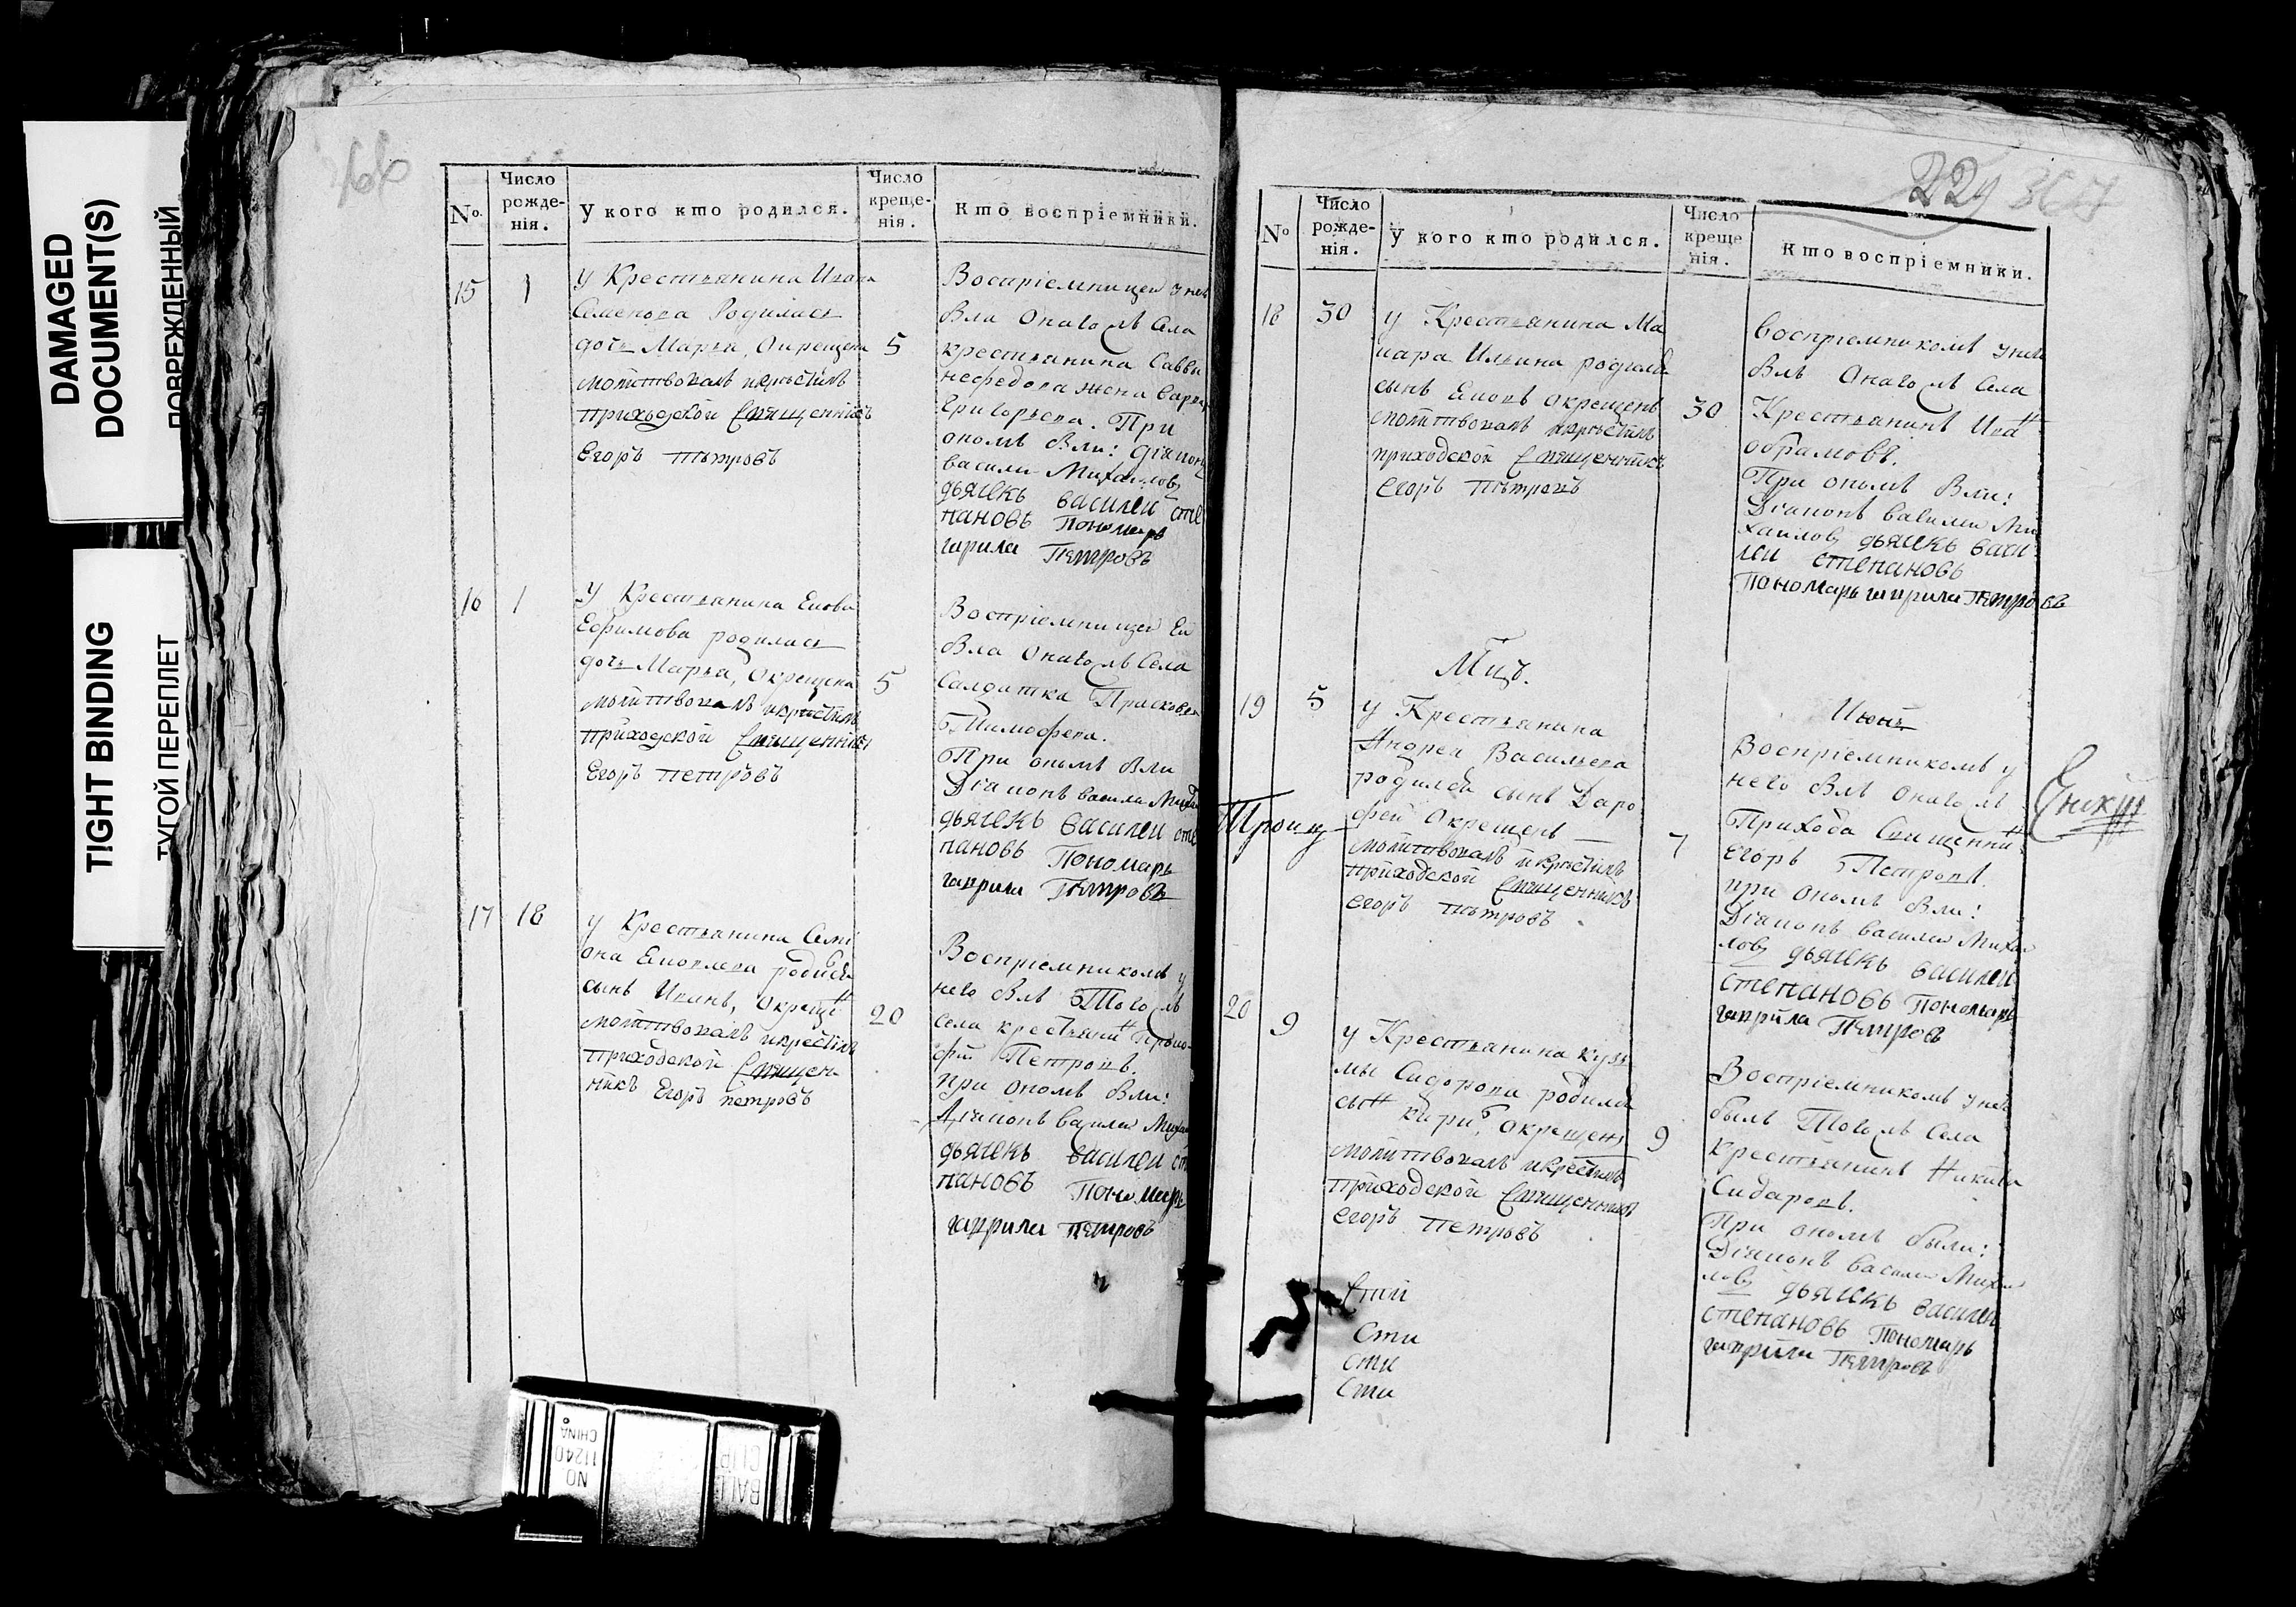 DAMAGED
DOCUMENT(S)
ПОВРЕЖДЕННЫЙ
TIGHT BINDING
ТУГОЙ ПЕРЕПЛЕТ
No.
Число рожде-нія.
У кого кто родился.
Число креще-нія.
Кто воспріемники.
15 1
У Крестьянина Ивана
Семенова Родилась
дочь Марья, Окрещена 5
молитвовалъ икрѣстилъ
приходской Священникъ
Егоръ Пѣтровъ
Воспріемницей у нее
Вла Онаго жъ Села
крестьянина Саввы
нефедова жена Варвар
Григорьева. При
ономъ Вли: Діаконъ
васили Михаиловъ
дьячекъ василеи сте
пановъ Пономарь
гаврила Пѣтровъ
16 1
У Крестьянина
Ефимова родилась
дочь Марья, Окрещена 5
молитвовалъ икрѣстилъ
приходской Священникъ
Егоръ петровъ
Воспріемницей Ей
Вла Онаго жъ Села
Салдатка Прасковья
Тимофева.
При ономъ Вли
Діаконъ васили
дьячекъ василеи сте
пановъ Пономарь
гаврила Пѣтровъ
17 18
У Крестьянина Семі
она родился
сынъ Иванъ, Окрещен 20
молитвовалъ икрестилъ
приходской Священ
никъ Егоръ петровъ
Воспріемникомъ у
него Влъ Того жъ
села крестьянин
Петровъ.
при ономъ Вли:
Діаконъ Василеи Михаи
дьячекъ василеи сте
пановъ Пономарь
гаврила пѣтровъ
229 367
No
Число рожде-нія.
У кого кто родился.
Число креще нія.
Кто воспріемники.
18 30
У Крестьянина Ма
кара Ильина родился
сынъ окрещенъ 30
молитвовалъ икрѣстилъ
приходской Священникъ
Егоръ Пѣтровъ
Воспріемникомъ у нег
Влъ Онаго жъ Села
Крестьянинъ Иван
обрамовъ.
При ономъ Вли:
Діаконъ василеи Ми
хаиловъ дьячекъ васи
леи степановъ
Пономарь гаврила Пѣтровъ
Мцъ. Июнь
19 5
У Крестьянина
Андрея Васильева
родился сынъ Даро
фей Окрещенъ 7
молитвовалъ икрѣстилъ
приходской Священникъ
егоръ пѣтровъ
Воспріемникомъ у
него Влъ Онаго жъ
Прихода Священни
Егоръ Петровъ.
при ономъ Вли:
Діаконъ василеи Михаи
ловъ дьячекъ василеи
степановъ Пономарь
гаврила Пѣтровъ
20 9
У Крестьянина Кузь
мы Сидорова родился
сын окрещенъ 9
молитвовалъ икрестилъ
приходской Священникъ
егоръ петровъ
Воспріемникомъ у нег
былъ Того жъ Села
Крестьянинъ Никита
Сидаровъ.
При ономъ были:
Діаконъ василеи Михаи
ловъ дьячекъ василеи
степановъ Пономарь
гаврила Пѣтровъ
Сти
сти
Сти
NO
11240
CHINA